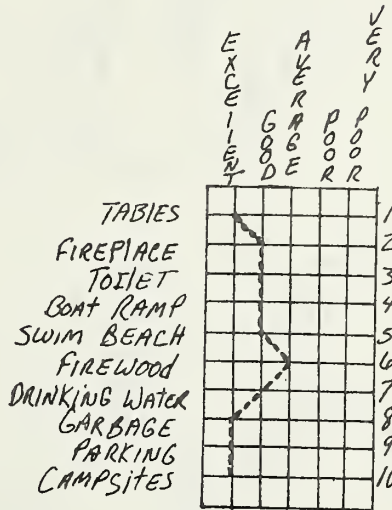 EXCELLENT
GOOD
AVERAGE
POOR
VERY POOR
TABLES 1
FIREPLACE 2
TOILET 3
BOAT RAMP 4
SWIM BEACH 5
FIREWOOD 6
DRINKING WATER 7
GARBAGE 8
PARKING 9
CAMPSITES 10